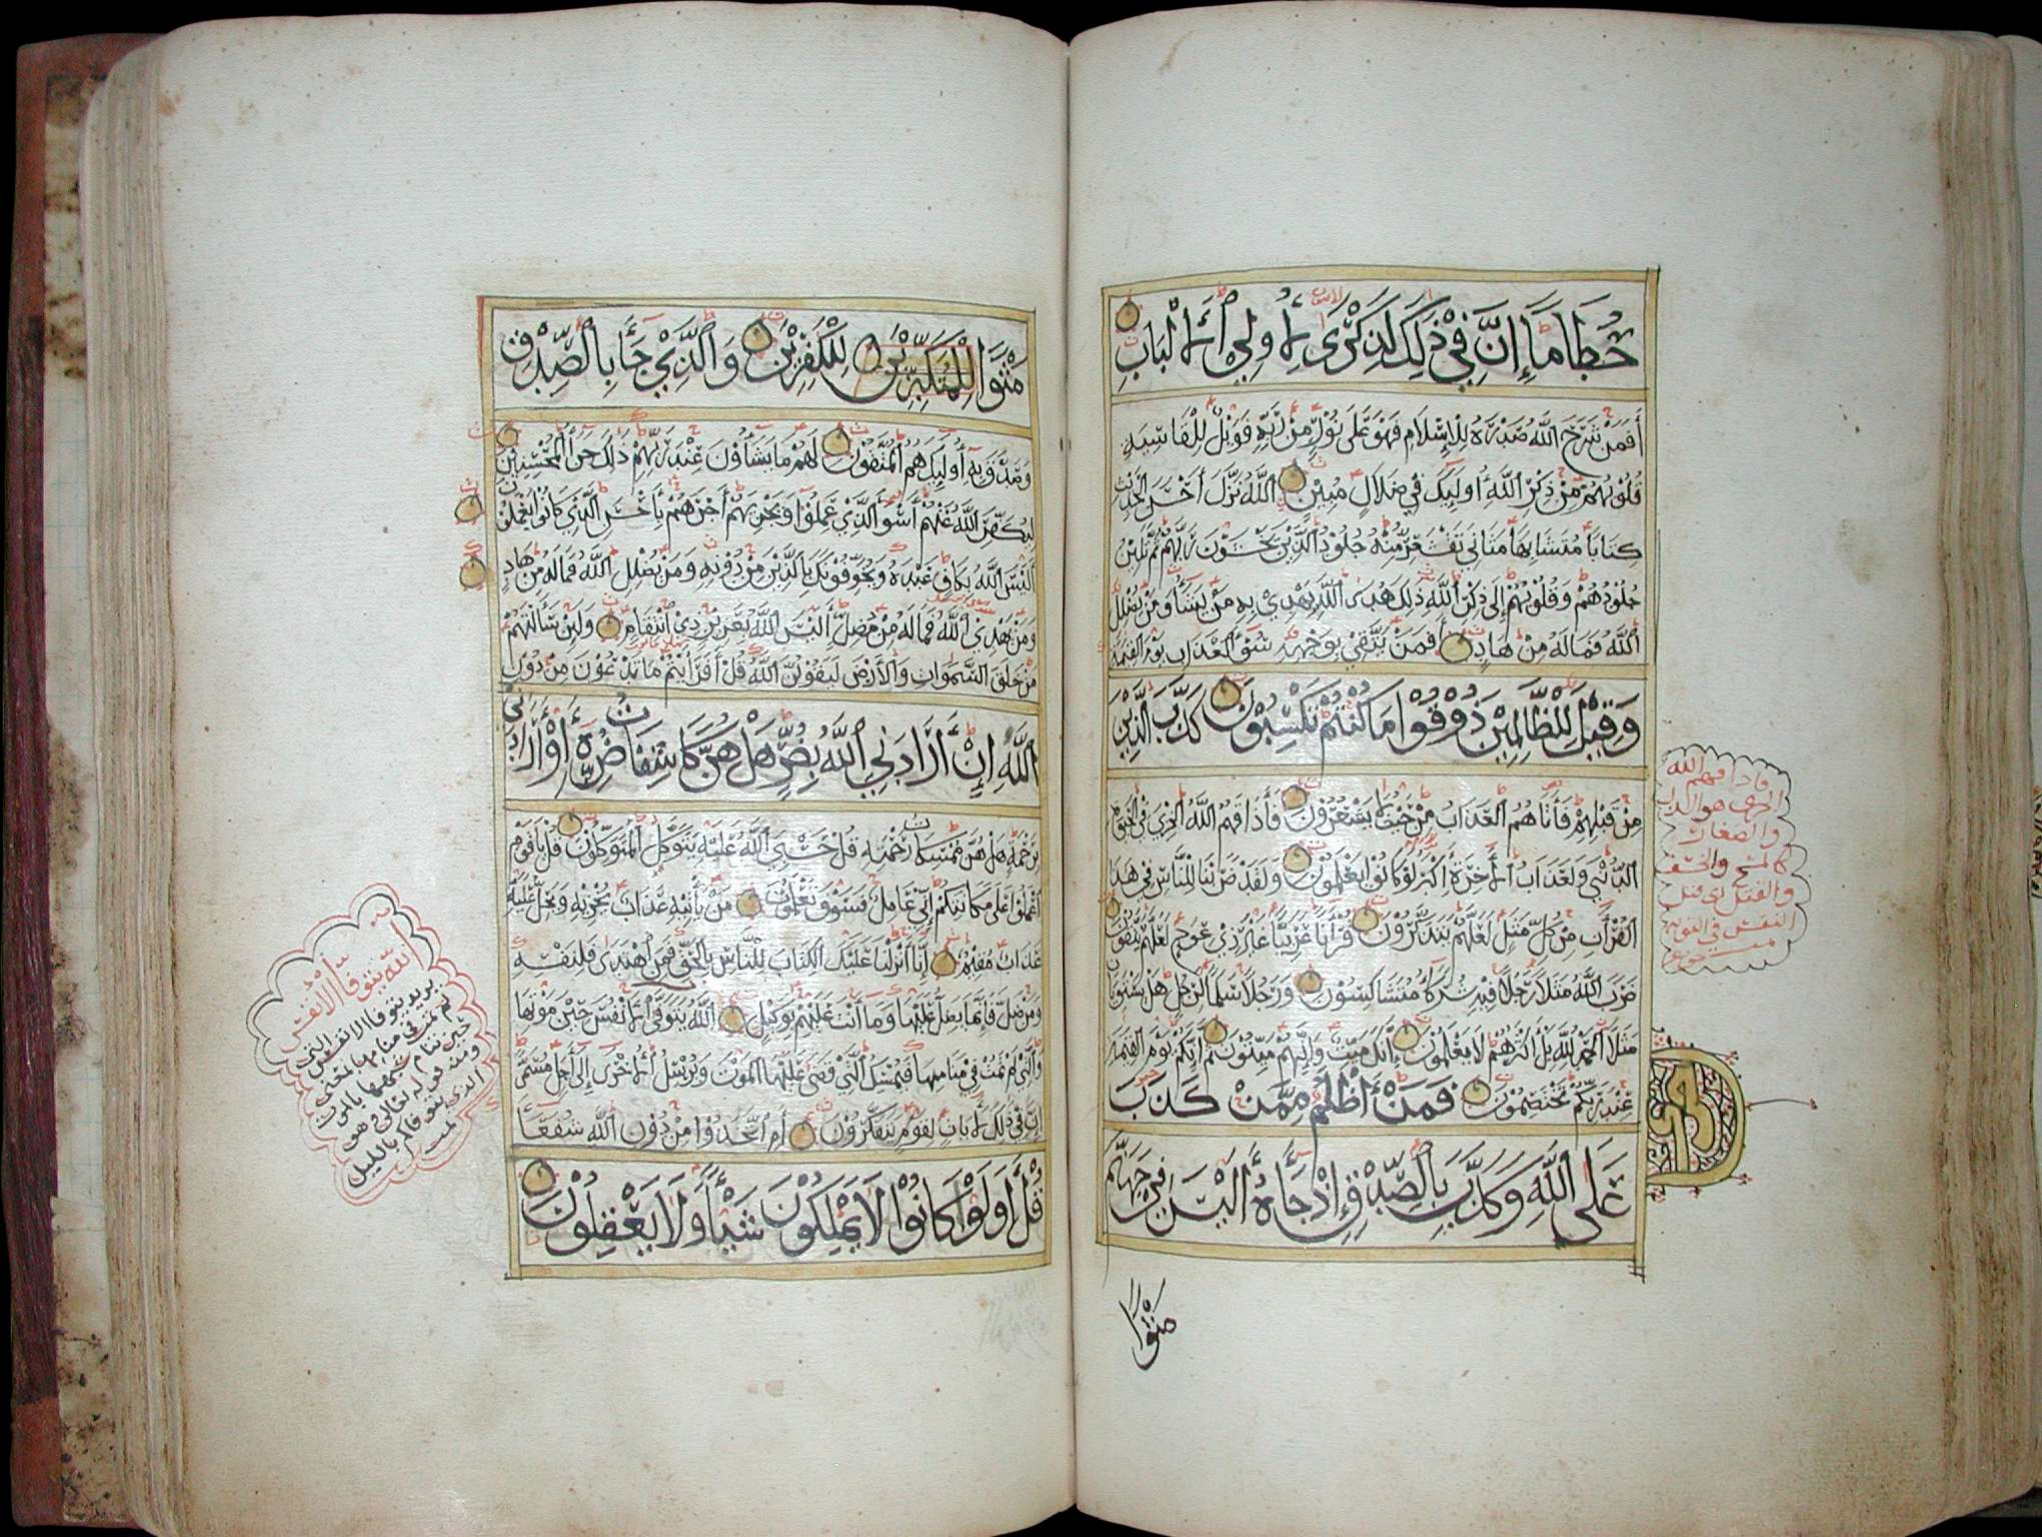 حُطَامًا إِنَّ فِي ذَٰلِكَ لَذِكْرَىٰ لِأُولِي ٱلْأَلْبَابِ
أَفَمَنْ شَرَحَ اللَّهُ صَدْرَهُ لِلْإِسْلَامِ فَهُوَ عَلَى نُورٍ مِنْ رَبِّهِ فَوَيْلٌ لِلْقَاسِيَةِ
قُلُوبُهُمْ مِنْ ذِكْرِ اللَّهِ أُولَٰئِكَ فِي ضَلَالٍ مُبِينٍ اللَّهُ نَزَّلَ أَحْسَنَ الْحَدِيثِ
كِتَابًا مُتَشَابِهًا مَثَانِيَ تَقْشَعِرُّ مِنْهُ جُلُودُ الَّذِينَ يَخْشَوْنَ رَبَّهُمْ ثُمَّ تَلِينُ
جُلُودُهُمْ وَقُلُوبُهُمْ إِلَى ذِكْرِ اللَّهِ ذَٰلِكَ هُدَى اللَّهِ يَهْدِي بِهِ مَنْ يَشَاءُ وَمَنْ يُضْلِلِ
اللَّهُ فَمَا لَهُ مِنْ هَادٍ أَفَمَنْ يَتَّقِي بِوَجْهِهِ سُوءَ الْعَذَابِ يَوْمَ الْقِيَٰمَةِ
وَقِيلَ لِلظَّالِمِينَ ذُوقُوا مَا كُنْتُمْ تَكْسِبُونَ كَذَّبَ الَّذِينَ
مِنْ قَبْلِهِمْ فَأَتَاهُمُ الْعَذَابُ مِنْ حَيْثُ لَا يَشْعُرُونَ فَأَذَاقَهُمُ اللَّهُ الْخِزْيَ فِي الْحَيَوٰةِ
الدُّنْيَا وَلَعَذَابُ الْأَخِرَةِ أَكْبَرُ لَوْ كَانُوا يَعْلَمُونَ وَلَقَدْ ضَرَبْنَا لِلنَّاسِ فِي هَذَا
الْقُرْآنِ مِنْ كُلِّ مَثَلٍ لَعَلَّهُمْ يَتَذَكَّرُونَ قُرْآنًا عَرَبِيًّا غَيْرَ ذِي عِوَجٍ لَعَلَّهُمْ يَتَّقُونَ
ضَرَبَ اللَّهُ مَثَلًا رَجُلًا فِيهِ شُرَكَاءُ مُتَشَاكِسُونَ وَرَجُلًا سَلَمًا لِرَجُلٍ هَلْ يَسْتَوِيَانِ
مَثَلًا الْحَمْدُ لِلَّهِ بَلْ أَكْثَرُهُمْ لَا يَعْلَمُونَ إِنَّكَ مَيِّتٌ وَإِنَّهُمْ مَيِّتُونَ ثُمَّ إِنَّكُمْ يَوْمَ الْقِيَٰمَةِ
عِنْدَ رَبِّكُمْ تَخْتَصِمُونَ فَمَنْ أَظْلَمُ مِمَّنْ كَذَبَ
عَلَى اللَّهِ وَكَذَّبَ بِالصِّدْقِ إِذْ جَاءَهُ أَلَيْسَ فِي جَهَنَّمَ
مَثْوًا
فاذاقهم الله
الخزي هو الذل
والصغار
كالمسخ والخسف
والقتل
مَثْوًا لِلْمُتَكَبِّرِينَ لِلْكَٰفِرِينَ وَالَّذِي جَاءَ بِالصِّدْقِ
وَصَدَّقَ بِهِ أُولَٰئِكَ هُمُ الْمُتَّقُونَ لَهُمْ مَا يَشَاءُونَ عِنْدَ رَبِّهِمْ ذَٰلِكَ جَزَاءُ الْمُحْسِنِينَ
لِيُكَفِّرَ اللَّهُ عَنْهُمْ أَسْوَأَ الَّذِي عَمِلُوا وَيَجْزِيَهُمْ أَجْرَهُمْ بِأَحْسَنِ الَّذِي كَانُوا يَعْمَلُونَ
أَلَيْسَ اللَّهُ بِكَافٍ عَبْدَهُ وَيُخَوِّفُونَكَ بِالَّذِينَ مِنْ دُونِهِ وَمَنْ يُضْلِلِ اللَّهُ فَمَا لَهُ مِنْ هَادٍ
وَمَنْ يَهْدِي اللَّهُ فَمَا لَهُ مِنْ مُضِلٍّ أَلَيْسَ اللَّهُ بِعَزِيزٍ ذِي انْتِقَامٍ وَلَئِنْ سَأَلْتَهُمْ
مَنْ خَلَقَ السَّمَوَاتِ وَالْأَرْضَ لَيَقُولُنَّ اللَّهُ قُلْ أَفَرَأَيْتُمْ مَا تَدْعُونَ مِنْ دُونِ
اللَّهِ إِنْ أَرَادَنِيَ اللَّهُ بِضُرٍّ هَلْ هُنَّ كَاشِفَاتُ ضُرِّهِ أَوْ أَرَادَنِي
بِرَحْمَةٍ هَلْ هُنَّ مُمْسِكَاتُ رَحْمَتِهِ قُلْ حَسْبِيَ اللَّهُ عَلَيْهِ يَتَوَكَّلُ الْمُتَوَكِّلُونَ قُلْ يَا قَوْمِ
اعْمَلُوا عَلَى مَكَانَتِكُمْ إِنِّي عَامِلٌ فَسَوْفَ تَعْلَمُونَ مَنْ يَأْتِيهِ عَذَابٌ يُخْزِيهِ وَيَحِلُّ عَلَيْهِ
عَذَابٌ مُقِيمٌ إِنَّا أَنْزَلْنَا عَلَيْكَ الْكِتَابَ لِلنَّاسِ بِالْحَقِّ فَمَنِ اهْتَدَى فَلِنَفْسِهِ
وَمَنْ ضَلَّ فَإِنَّمَا يَضِلُّ عَلَيْهَا وَمَا أَنْتَ عَلَيْهِمْ بِوَكِيلٍ اللَّهُ يَتَوَفَّى الْأَنْفُسَ حِينَ مَوْتِهَا
وَالَّتِي لَمْ تَمُتْ فِي مَنَامِهَا فَيُمْسِكُ الَّتِي قَضَى عَلَيْهَا الْمَوْتَ وَيُرْسِلُ الْأُخْرَى إِلَى أَجَلٍ مُسَمًّى
إِنَّ فِي ذَٰلِكَ لَآيَاتٍ لِقَوْمٍ يَتَفَكَّرُونَ أَمِ اتَّخَذُوا مِنْ دُونِ اللَّهِ شُفَعَاءَ
قُلْ أَوَلَوْ كَانُوا لَا يَمْلِكُونَ شَيْئًا وَلَا يَعْقِلُونَ
الله يتوفا الانفس
يريد يتوفا الانفس التي
لم تمت في منامها
حين تنام
ومنه قوله تعالى وهو
الذي يتوفاكم بالليل